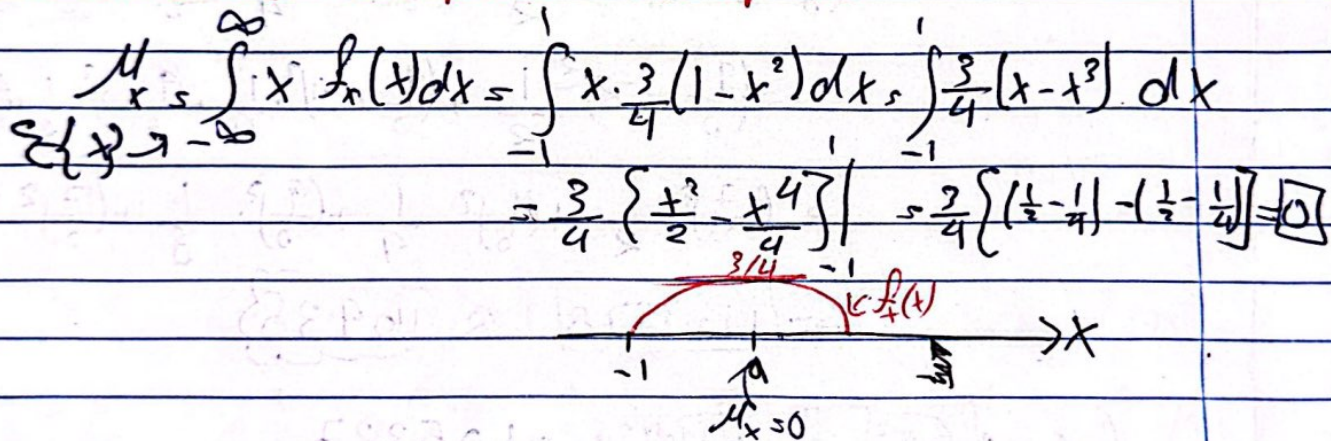 μₓ = ∫_{-∞}^{∞} x fₓ(x)dx = ∫_{-1}^{1} x·3/4(1-x²)dx = ∫_{-1}^{1} 3/4(x-x³) dx
E{x} →
= 3/4 {x²/2 - x⁴/4}|_{-1}^{1} = 3/4 {(1/2 - 1/4) - (1/2 - 1/4)} = 0
3/4
fₓ(x)
x
-1 0
μₓ = 0